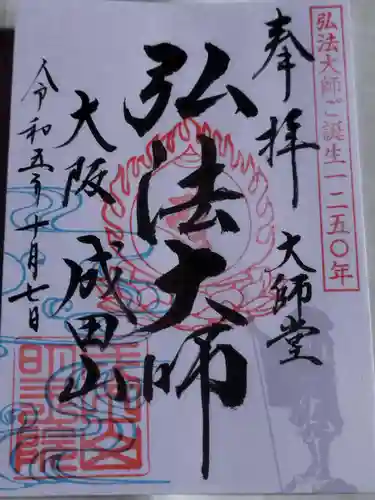 弘法大師ご誕生一二五〇年
奉拝
大師堂
弘法大師
大阪
成田山
令和五年十月七日